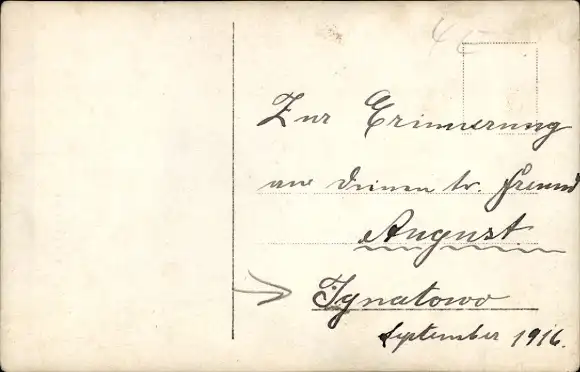 4 €
Zur Erinnerung
an deinen tr. Freund
August
Ignatowo
September 1916.